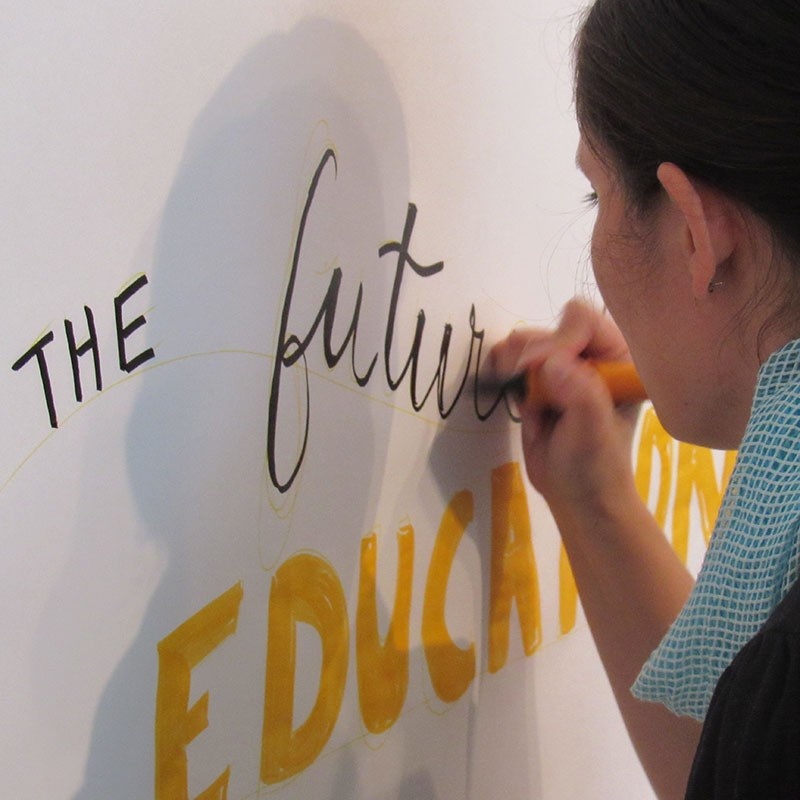 THE future
EDUCATION